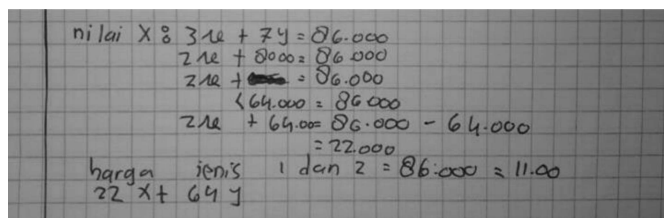 nilai X : 3x + 7y = 86.000
2x + 8000 = 86.000
2x + = 86.000
<64.000 = 86000
2x + 64.00= 86.000 - 64.000
= 22.000
harga jenis 1 dan 2 = 86.000 = 11.00
22 x + 64 y